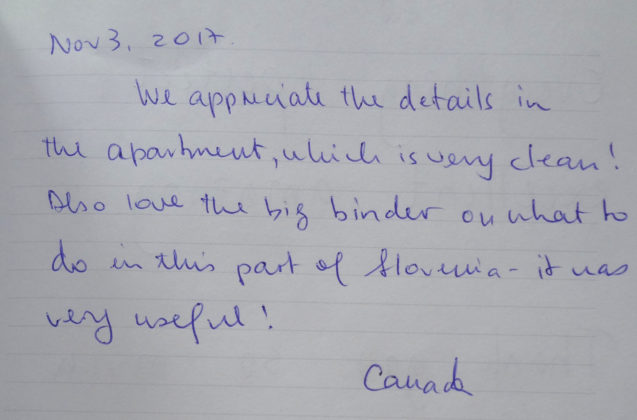 Nov 3, 2017.
We appreciate the details in
the apartment, which is very clean!
Also love the big binder on what to
do in this part of Slovenia - it was
very useful!
Canada